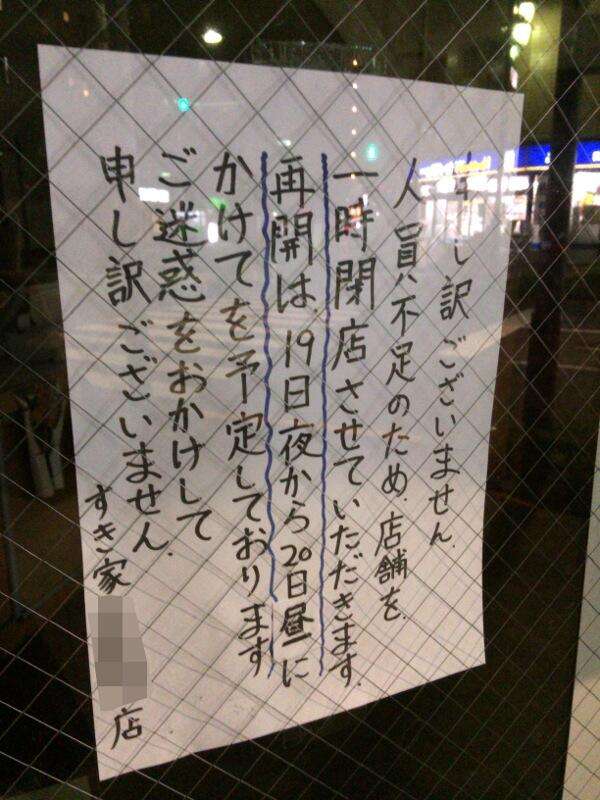 申し訳ございません。
人員不足のため、店舗を
一時閉店させていただきます。
再開は、19日夜から20日昼に
かけてを予定しております
ご迷惑をおかけして
申し訳ございません。
すき家 店